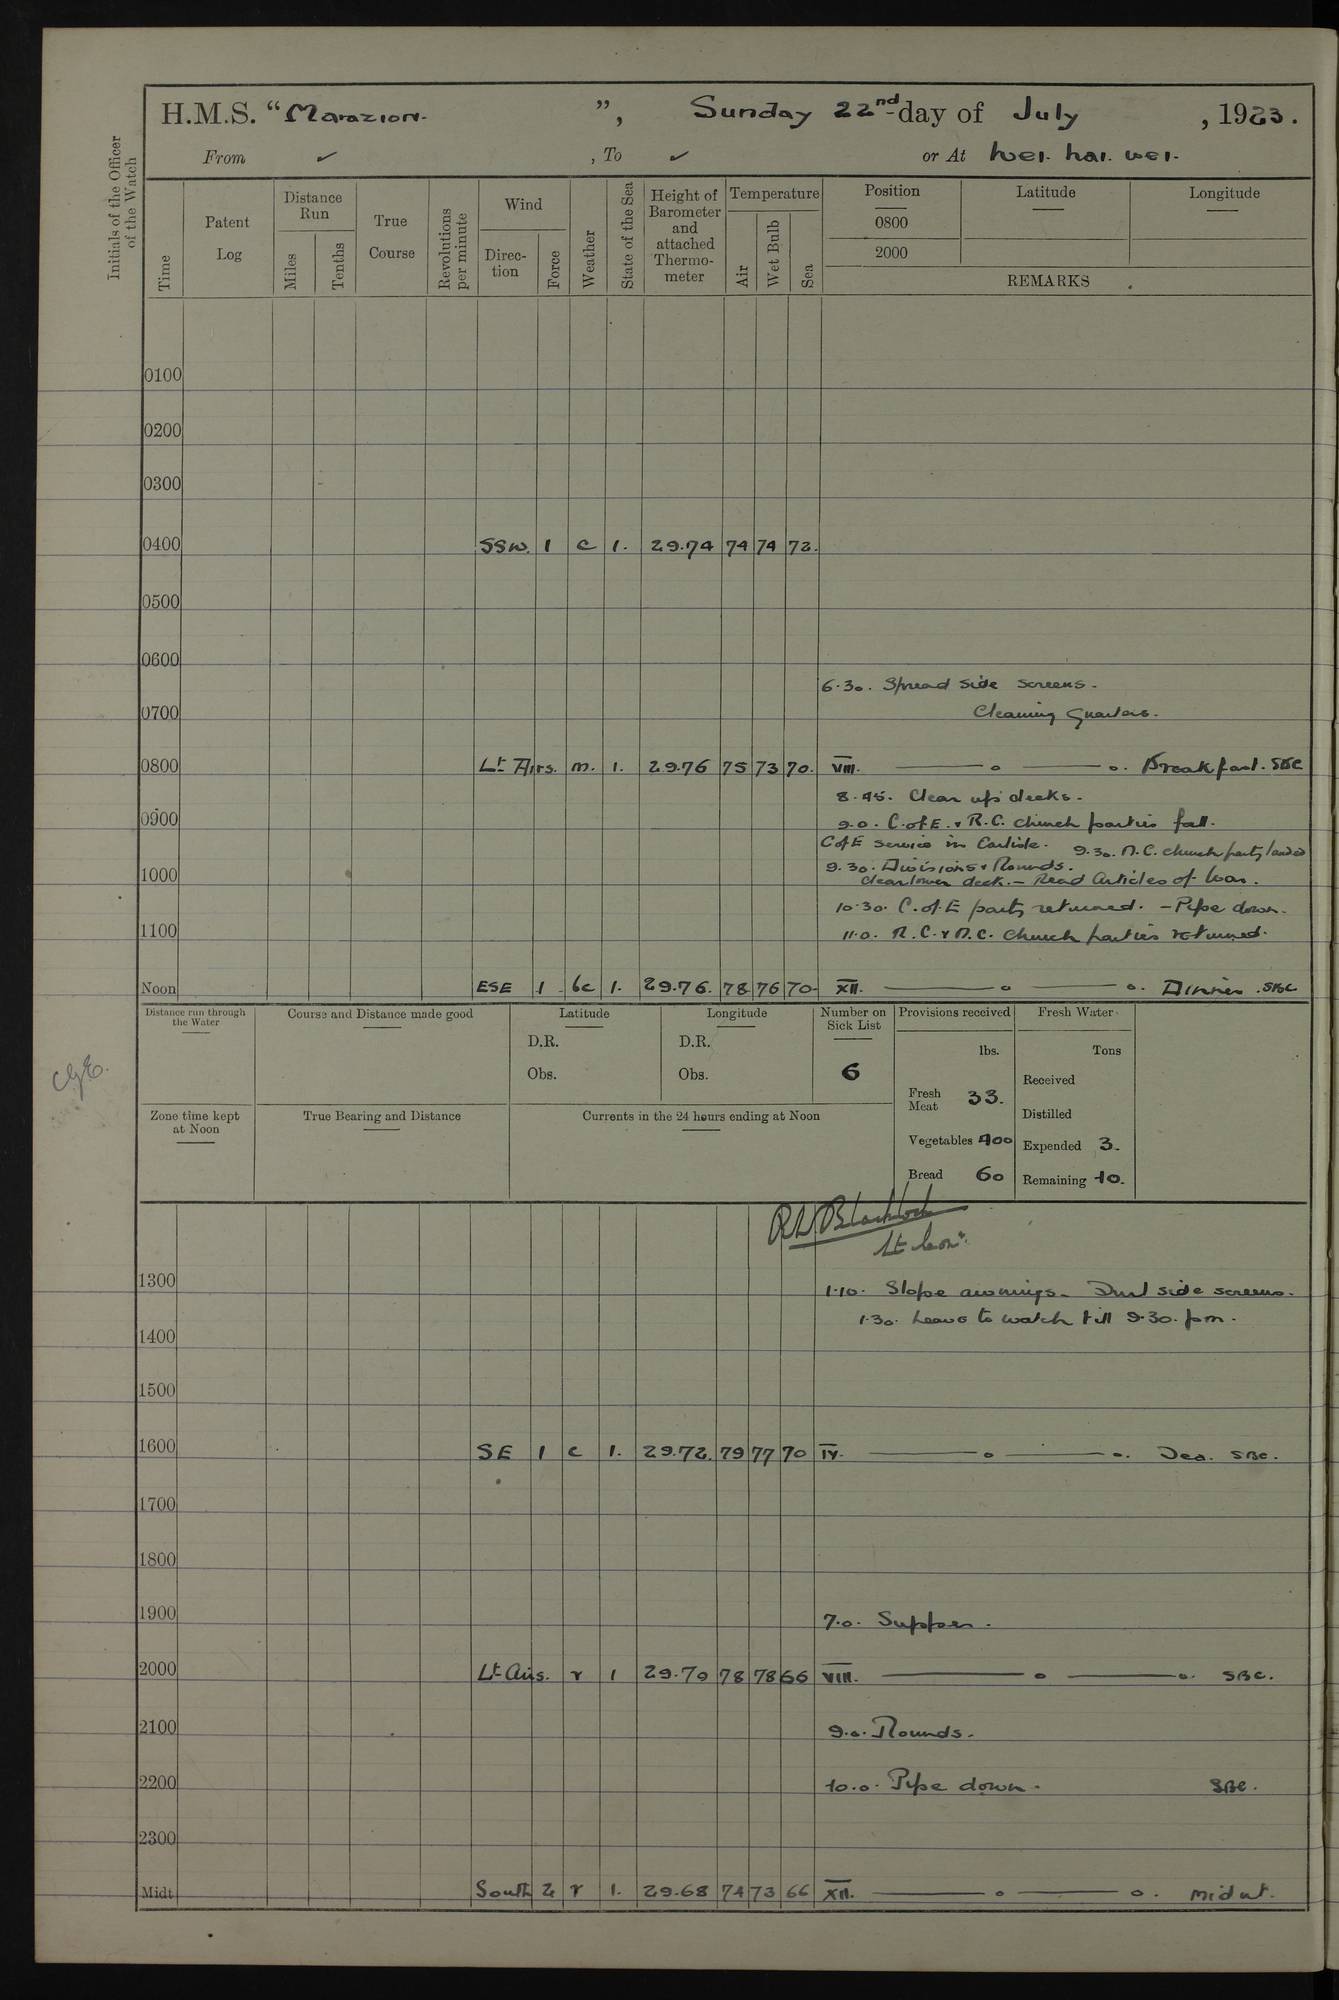 H.M.S. “Marazion.”, Sunday 22nd day of July, 1923.
From ✓, To ✓ or At Wei. hai. wei.
Initials of the Officer of the Watch
Time
Patent Log
Distance Run
Miles
Tenths
True Course
Revolutions per minute
Wind
Direction
Force
Weather
State of the Sea
Height of Barometer and attached Thermometer
Temperature
Air
Wet Bulb
Sea
Position Latitude Longitude
0800
2000
REMARKS
0100
0200
0300
0400 SSW. 1 c 1. 29.74 74 74 72.
0500
0600
6.30. Spread side screens.
0700 Cleaning Quarters.
0800 Lt Airs. m. 1. 29.76 75 73 70. VIII. — o — o. Breakfast. SBC
8.45. Clear up decks.
0900 9.0. C. of E. & R.C. church parties fall.
C of E Service in Carlisle. 9.30. N.C. church party landed
9.30. Divisions & Rounds.
1000 Clear lower deck. – Read Articles of War.
10.30. C. of. E party returned. – Pipe down.
1100 11.0. R.C. & N.C. Church parties returned.
Noon ESE 1 bc 1. 29.76. 78 76 70 XII. — o — o. Dinner. SBC
Distance run through the Water
Course and Distance made good
Latitude
D.R.
Obs.
Longitude
D.R.
Obs.
Number on Sick List
6
Provisions received
lbs.
Fresh Meat 33.
Vegetables 400
Bread 60
Fresh Water
Tons
Received
Distilled
Expended 3.
Remaining 10.
Zone time kept at Noon
True Bearing and Distance
Currents in the 24 hours ending at Noon
Lt Comr.
1300 1.10. Slope awnings. Furl side screens.
1.30. Leave to watch till 9.30. pm.
1400
1500
1600 SE 1 c 1. 29.72. 79 77 70 IV. — o — o. Tea. SBC.
1700
1800
1900 7.0. Supper.
2000 Lt Airs. r 1 29.70 78 78 66 VIII. — o — o. SBC.
2100 9.0. Rounds.
2200 10.0. Pipe down. SBC.
2300
Midt South 2 r 1. 29.68 74 73 66 XII. — o — o. Midnt.